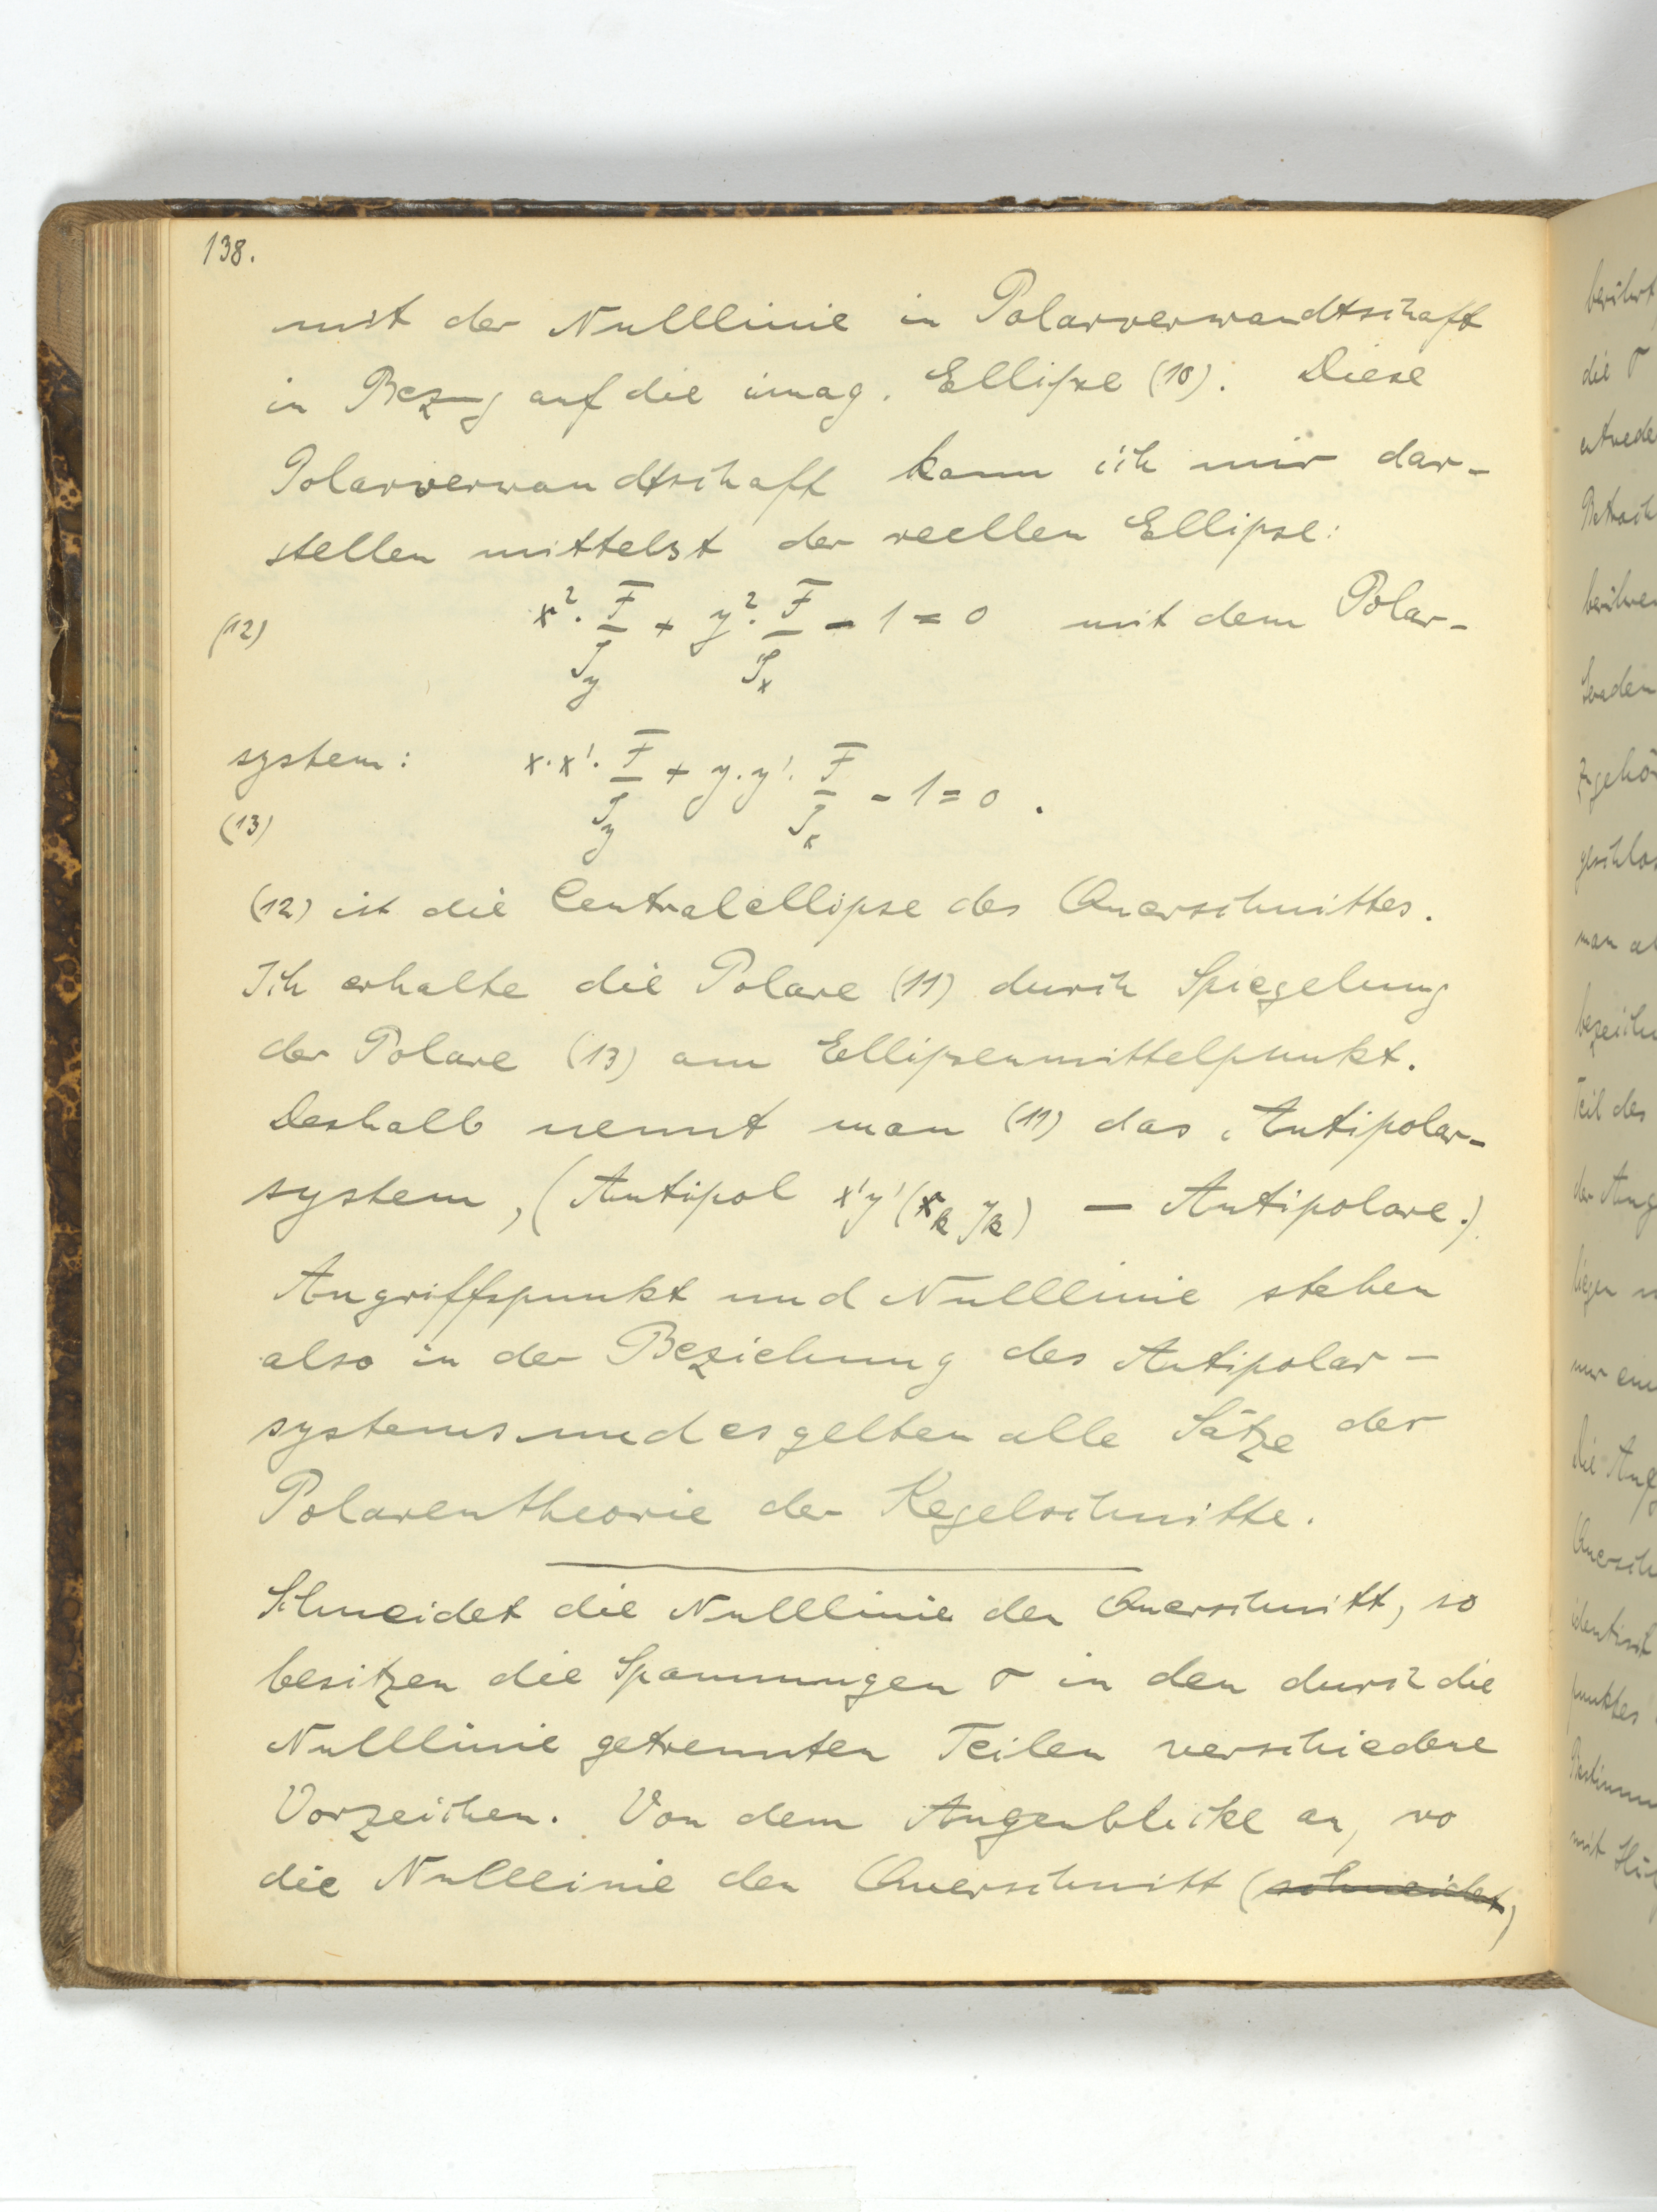 138.
mit der Nulllinie in Polarverwandtschaft
in Bezug auf die imag. Ellipse (10). Diese
Polarverwandtschaft kann ich mir dar-
stellen mittelst der reellen Ellipse:
(12) x². F/Jy + y². F/Jx - 1 = 0 mit dem Polar-
system: x.x'. F/Jy + y.y'. F/Jx - 1 = 0.
(13)
(12) ist die Centralellipse des Querschnittes.
Ich erhalte die Polare (11) durch Spiegelung
der Polare (13) am Ellipsenmittelpunkt.
Deshalb nennt man (11) das Antipolar-
system, (Antipol x'y' (xk yk) — Antipolare.)
Angriffspunkt und Nulllinie stehen
also in der Beziehung des Antipolar-
systems und es gelten alle Sätze der
Polarentheorie der Kegelschnitte.
Schneidet die Nulllinie den Querschnitt, so
besitzen die Spannungen σ in den durch die
Nulllinie getrennten Teilen verschiedene
Vorzeichen. Von dem Augenblicke an, wo
die Nulllinie den Querschnitt (schneidet)
berührt
die σ
entwede
zugehö
geschlos
man
bezeichn
Teil des
der Ang
liegen
nur ein
Die
Quersch
identisch
punktes
mit